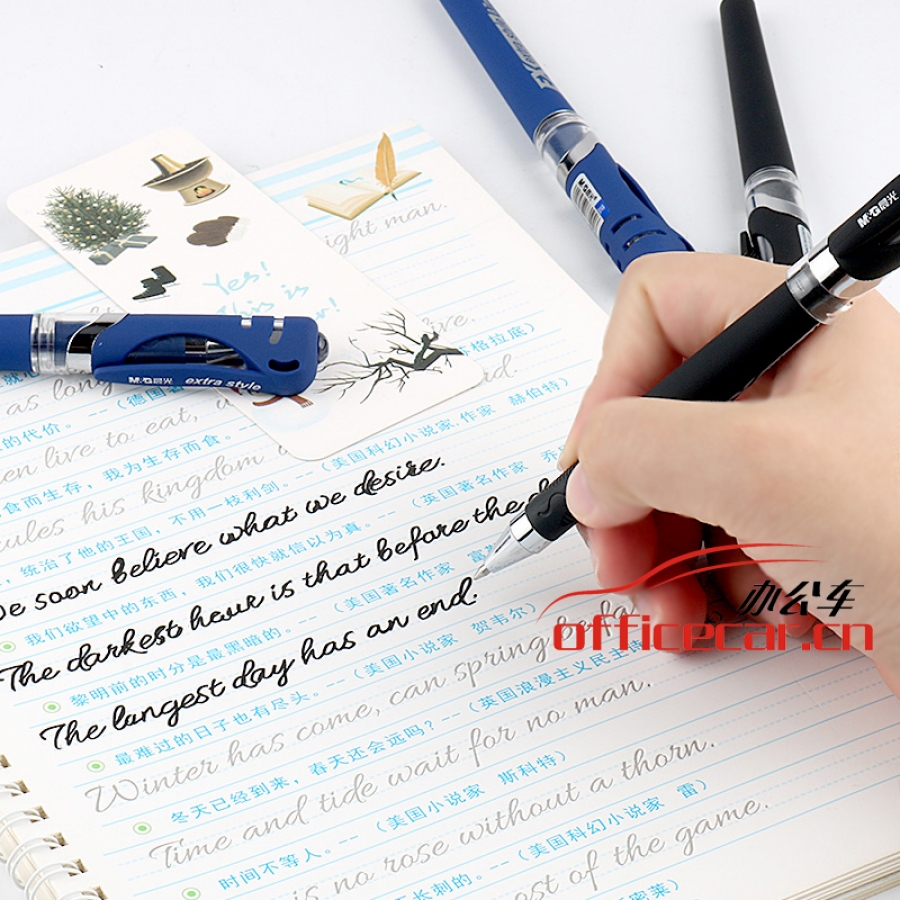 Extra style
M&G
M&G晨光
Yes!
This is
ight man.
live.
(苏格拉底)
M&G晨光 extra style
as long
的代价。--(德国著
en live to eat,
食而生存，我为生存而食。--
(美国科幻小说家.作家 赫伯特)
cules his kingdom
，统治了他的王国，不用一枝利剑。--(
(英国著名作家 乔
We soon believe what we desire.
我们欲望中的东西，我们很快就信以为真。--
(美国著名作家 富
The darkest hour is that before the d
黎明前的时分是最黑暗的。--(美国小说家 贺韦尔)
The longest day has an end.
最难过的日子也有尽头。--(美国小说家
办公车
officecar.cn
Winter has come, can spring be fa
冬天已经到来，春天还会远吗？--(英国浪漫主义民主诗
Time and tide wait for no man.
时间不等人。--(美国小说家 斯科特)
is no rose without a thorn.
长刺的。--(美国科幻小说家 雷)
ost of the game.
密莱)